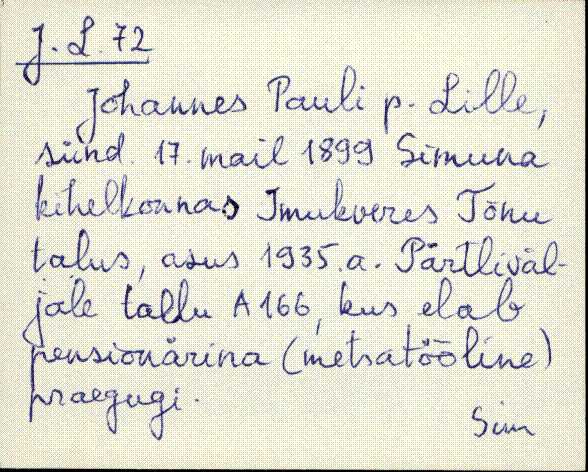 J. L. 72
Johannes Pauli p. Lille,
sünd. 17. mail 1899 Simuna
kihelkonnas Imukveres Tõnu
talus, asus 1935. a. Pärtliväl-
jale tallu A 166, kus elab
pensionärina (metsatööline)
praegugi.
Sim